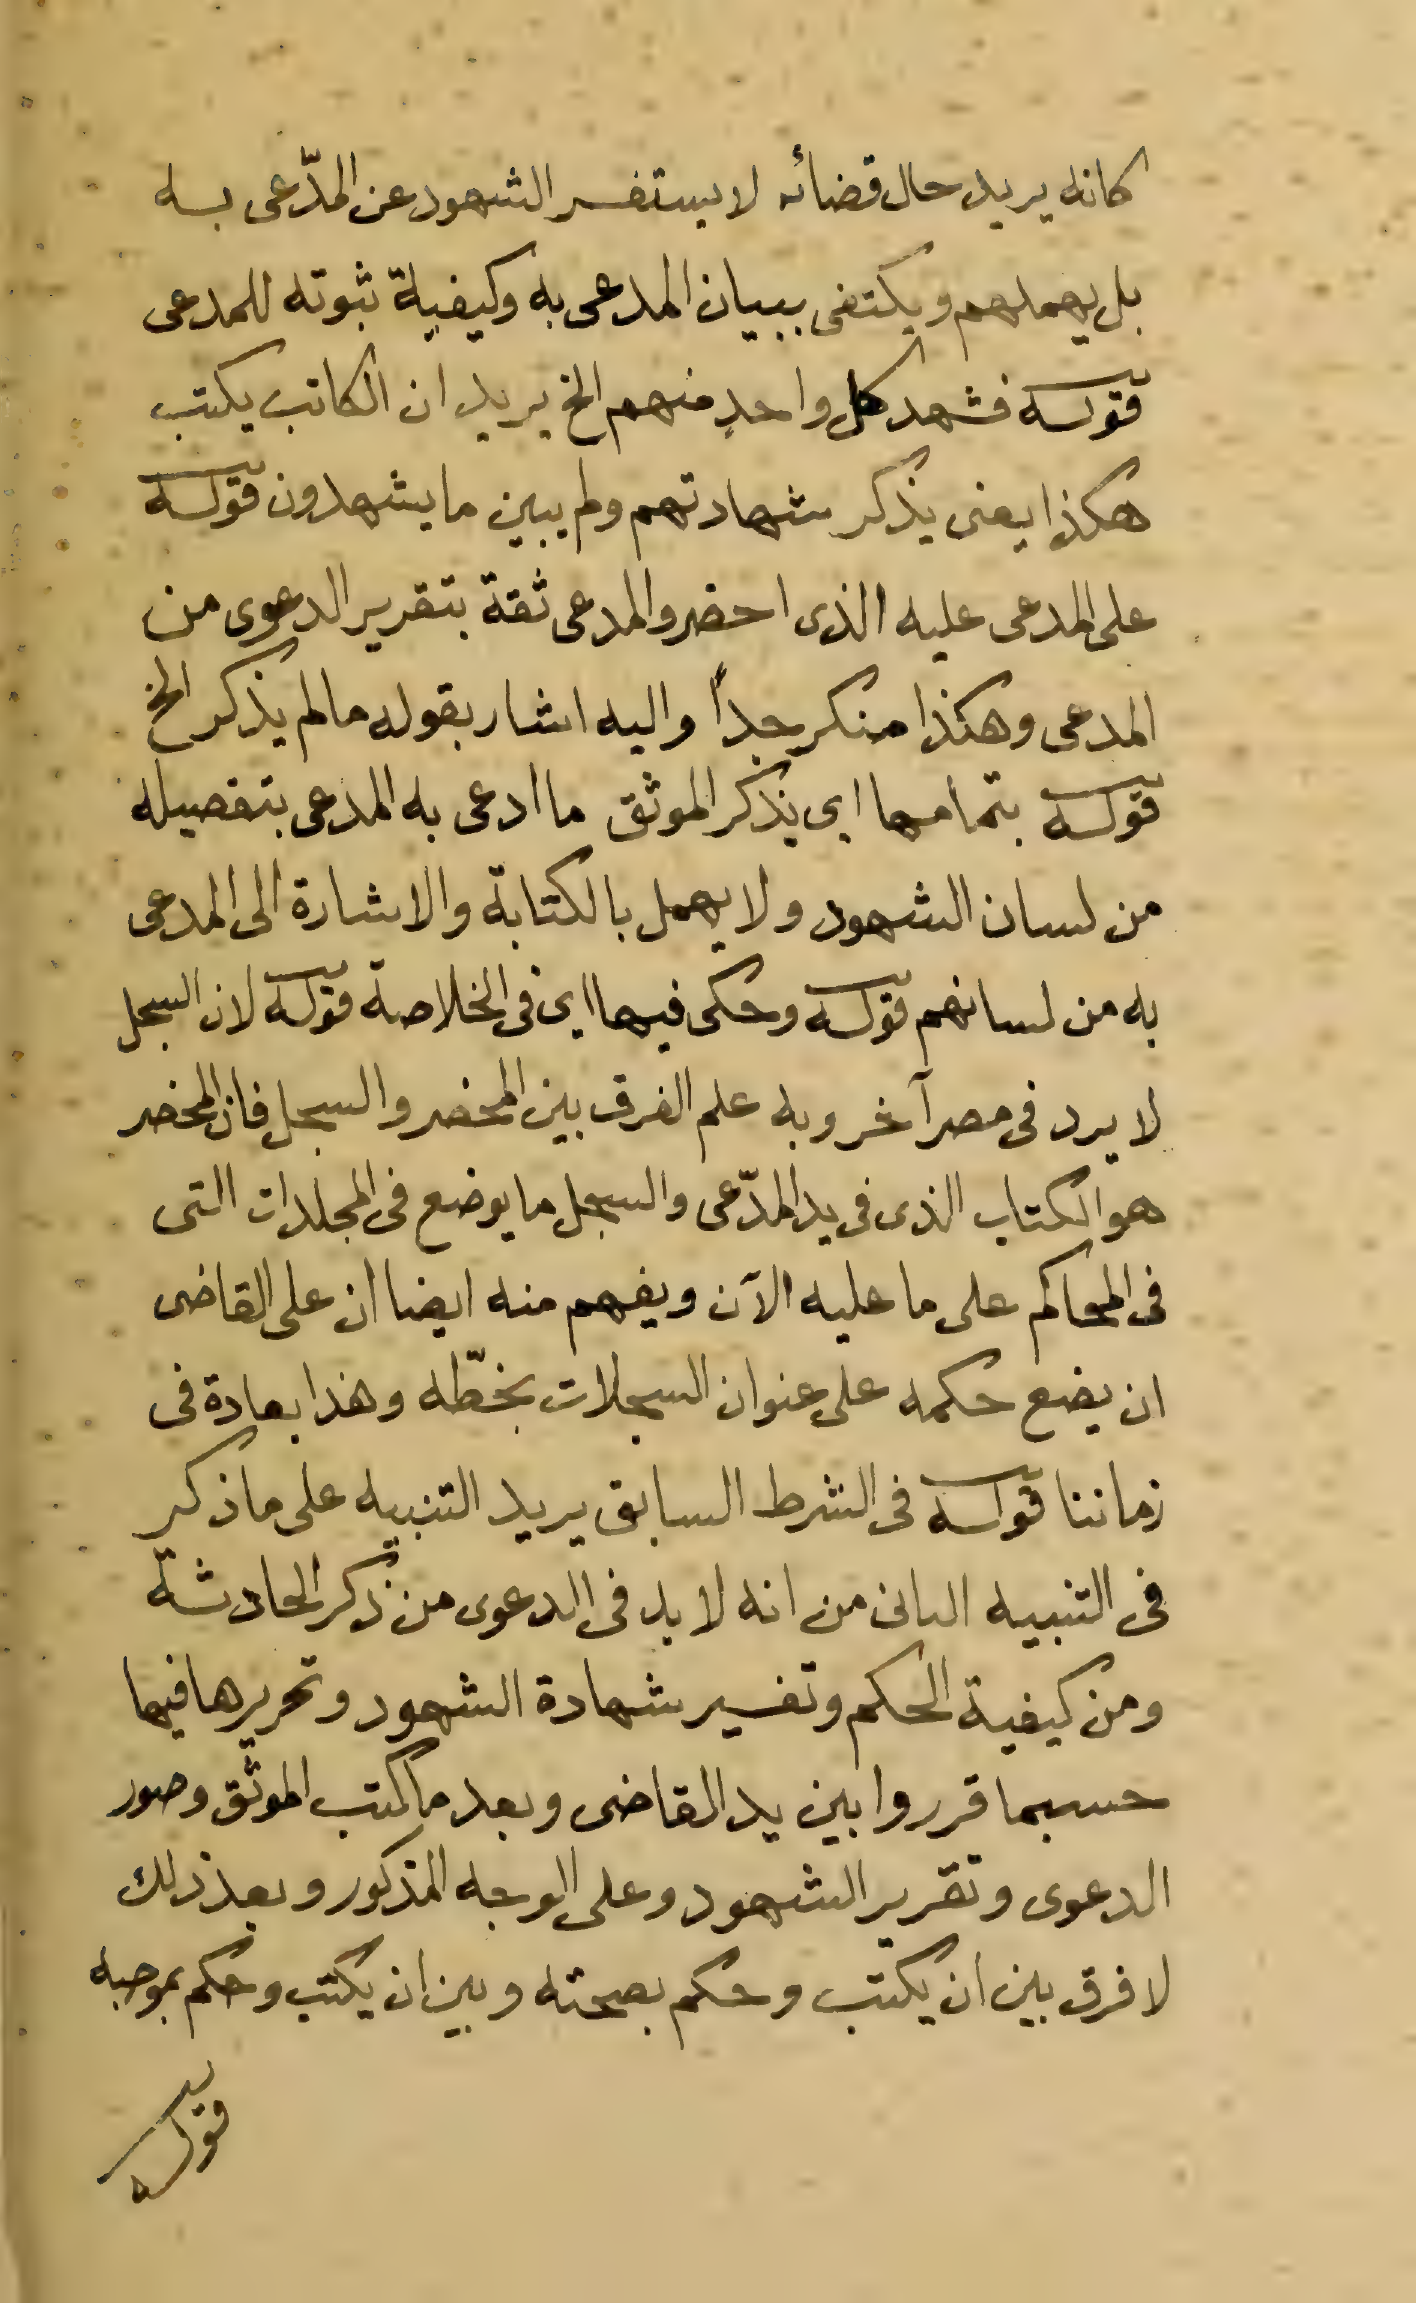 كانه يريد حال قضائه لا يستفسر الشهود عن المدّعى به
بل يهملهم ويكتفى ببيان المدعى به وكيفية ثبوته للمدعى
قوله فشهد كل واحدٍ منهم الخ يريد ان الكاتب يكتب
هكذا يعنى يذكر شهادتهم ولم يبين ما يشهدون قوله
على المدعى عليه الذى احضر والمدعى ثقة بتقرير الدعوى من
المدعى وهكذا منكر جداً واليه اشار بقوله مالم يذكر الخ
قوله بتمامها اى يذكر الموثق ما ادعى به المدعى بتفصيله
من لسان الشهود ولا يهمل بالكتابة والاشارة الى المدعى
به من لسانهم قوله وحكى فيها اى فى الخلاصة قوله لان السجل
لا يرد فى مصر آخر وبه علم الفرق بين المحضر والسجل فان المحضر
هو الكتاب الذى فى يد المدّعى والسجل ما يوضع فى المجلدات التى
فى المحاكم على ما عليه الآن ويفهم منه ايضا ان على القاضى
ان يضع حكمه على عنوان السجلات بخطّه وهذا بعادة فى
زماننا قوله فى الشرط السابق يريد التنبيه على ما ذكر
فى التنبيه الثانى من انه لا بد فى الدعوى من ذكر الحادثة
ومن كيفية الحكم وتفسير شهادة الشهود وتحريرها فيها
حسبما قرروا بين يد القاضى وبعد ما كتب الموثق وصور
الدعوى وتقرير الشهود وعلى الوجه المذكور وبعد ذلك
لا فرق بين ان يكتب وحكم بصحته وبين ان يكتب وحكم بموجبه
قوله